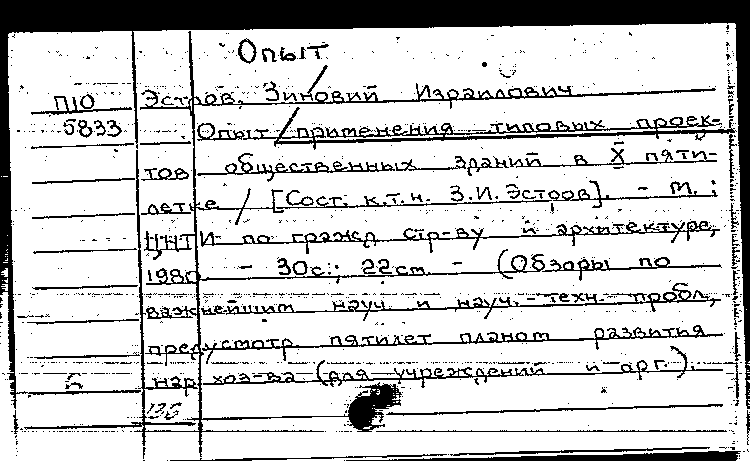 Опыт
Эстров, Зиновий Израилович
П10
5833
Опыт / применения типовых проек-
тов общественных зданий в X пяти-
летке / [Сост. к.т.н. З.И. Эстров]. - М.:
ЦНТИ по гражд. стр-ву и архитектуре,
1980. - 30с.; 22см. - (Обзоры по
важнейшим науч. и науч.-техн. пробл.,
предусмотр. пятилет. планом развития
нар. хоз-ва (для учреждений и орг.).
Б